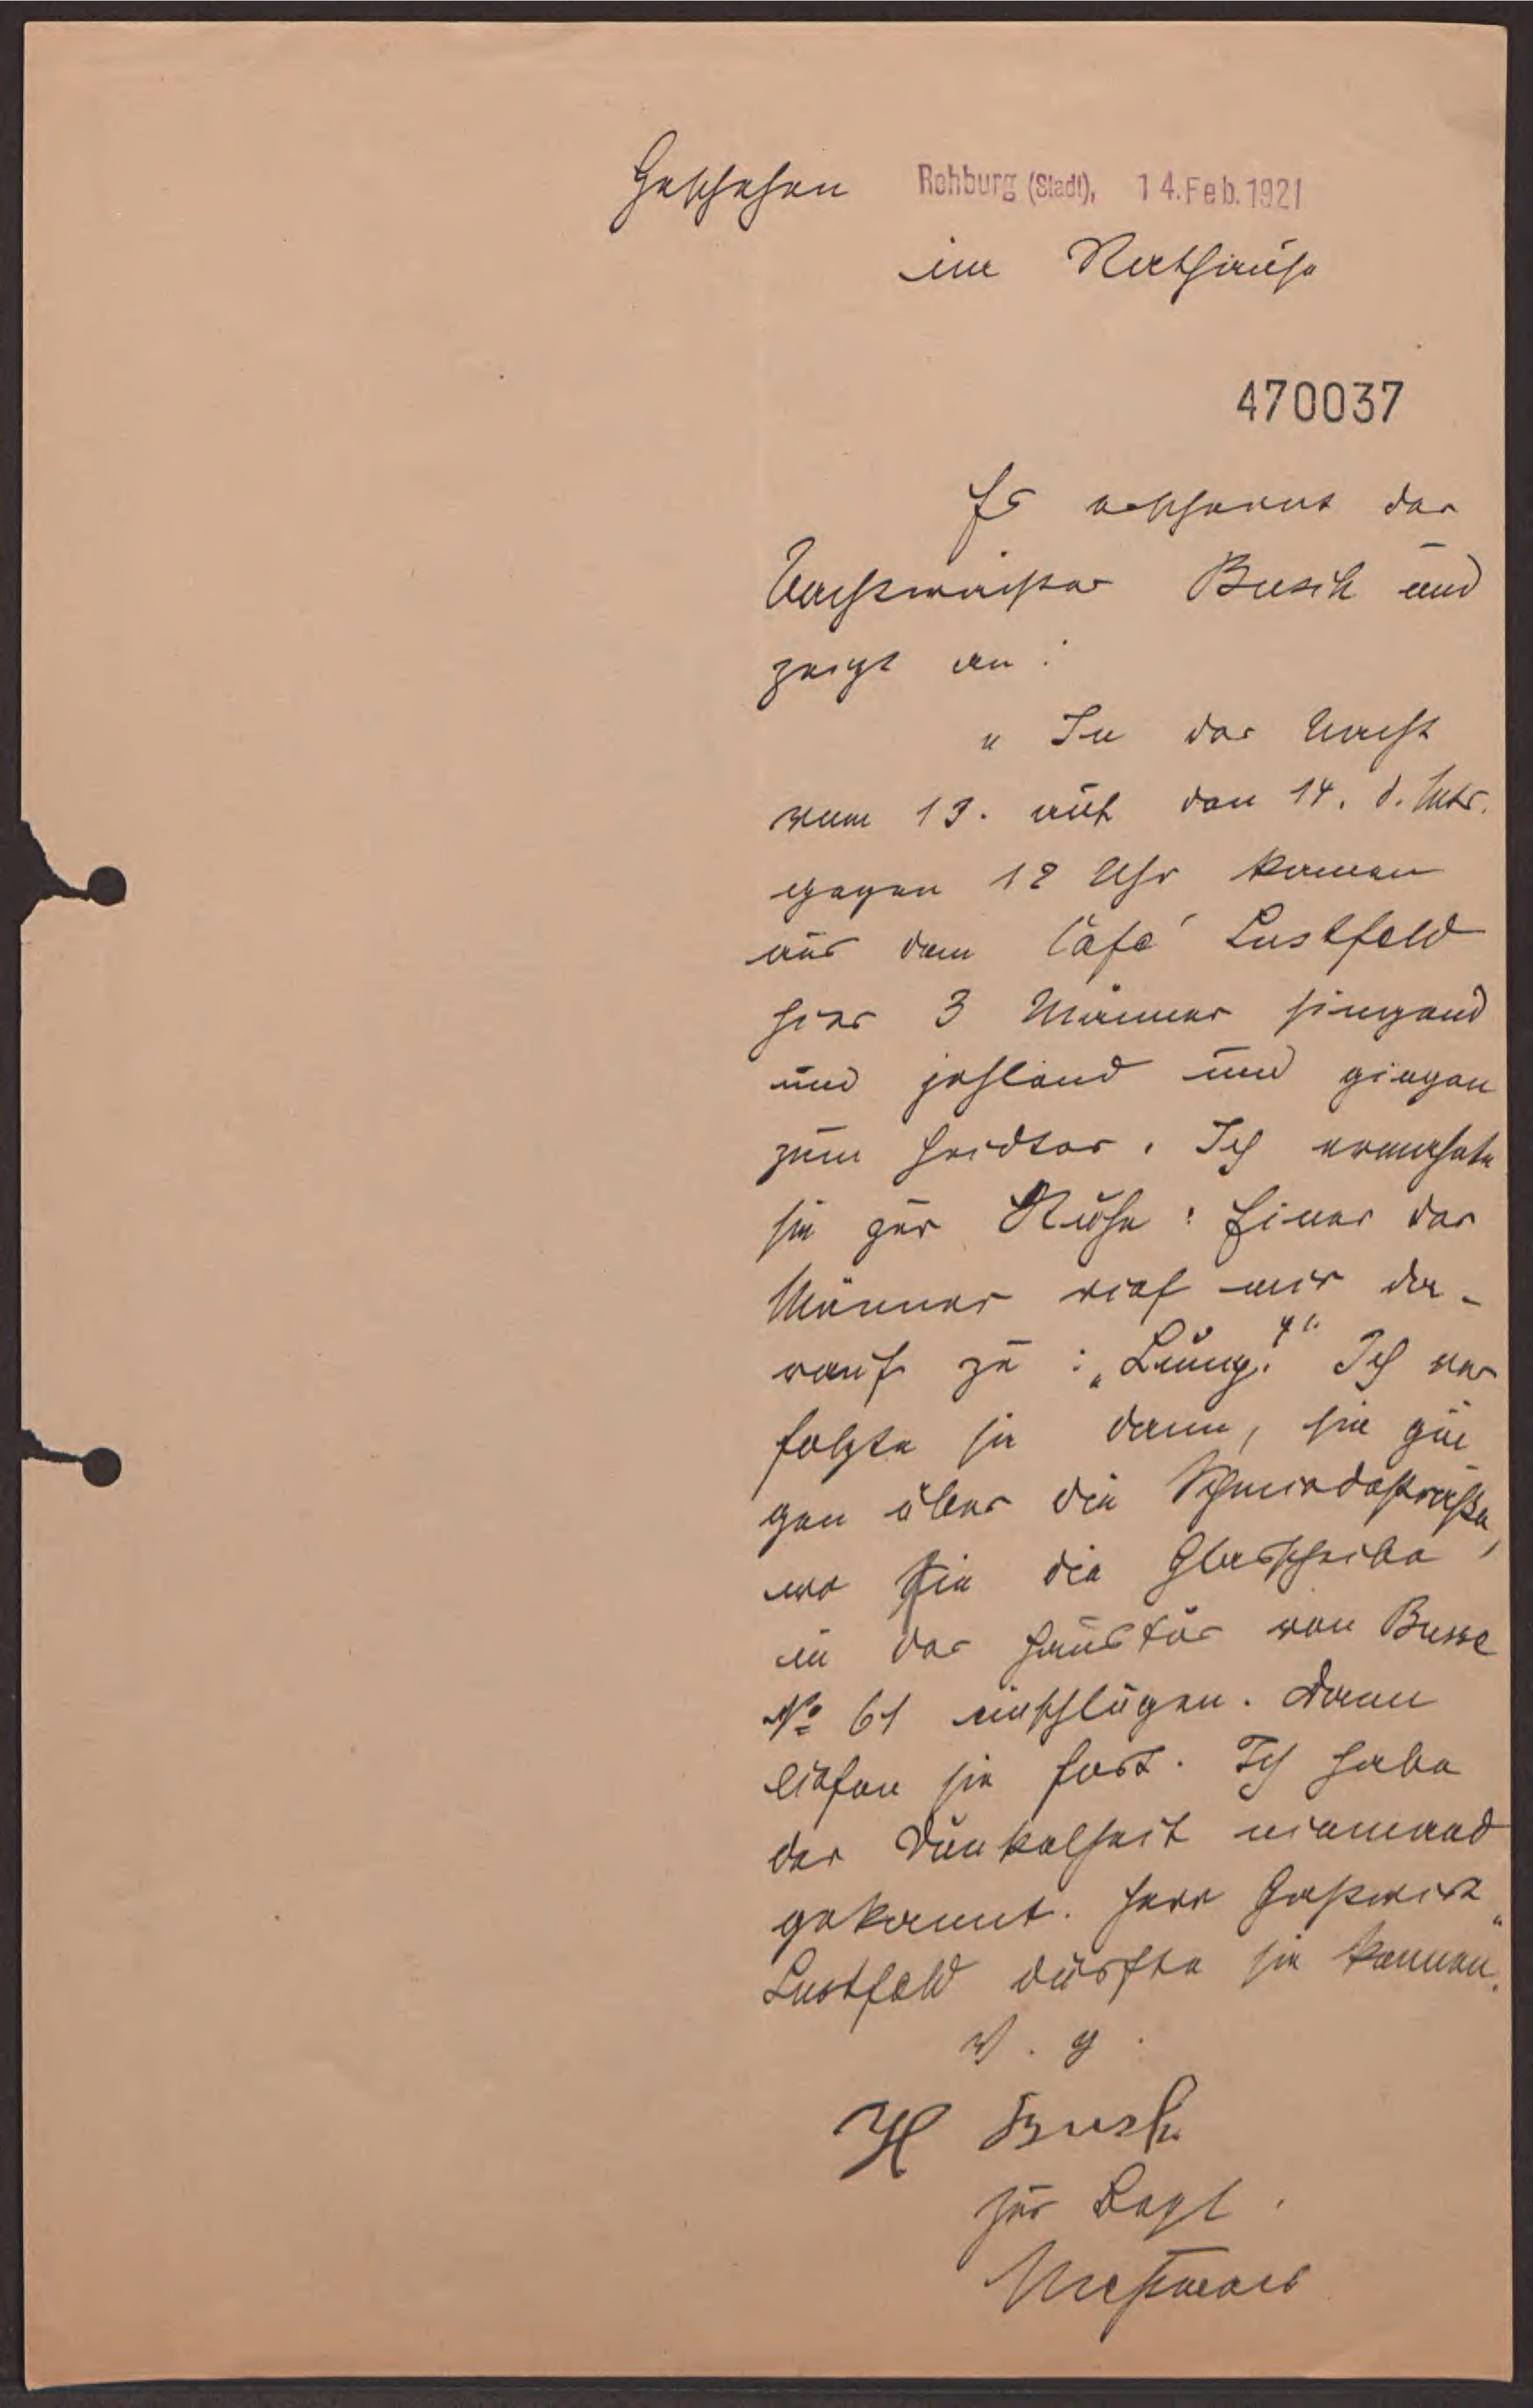 Geschehen Rehburg (Stadt), 14. Feb. 1921
im Rathause
470037
Es erscheint der
Wachtmeister Busch und
zeigt an:
"In der Nacht
vom 13. auf den 14. d. Mts.
gegen 12 Uhr kamen
aus dem Café Lustfeld
hier 3 Männer singend
und johlend und gingen
zum Heidtor. Ich ermahnte
sie zur Ruhe: Einer der
Männer rief mir da-
rauf zu: „ Ich ver
folgte sie dann, sie gin
gen über die Schmiedestraße,
wo sie die Glasscheibe
in der Haustür von Busse
No 61 einschlugen. Dann
liefen sie fort. Ich habe
der Dunkelheit niemand
gekannt. Herr Gastwirt
Lustfeld dürfte sie kennen."
v. g.
H Busch
zur Begl.